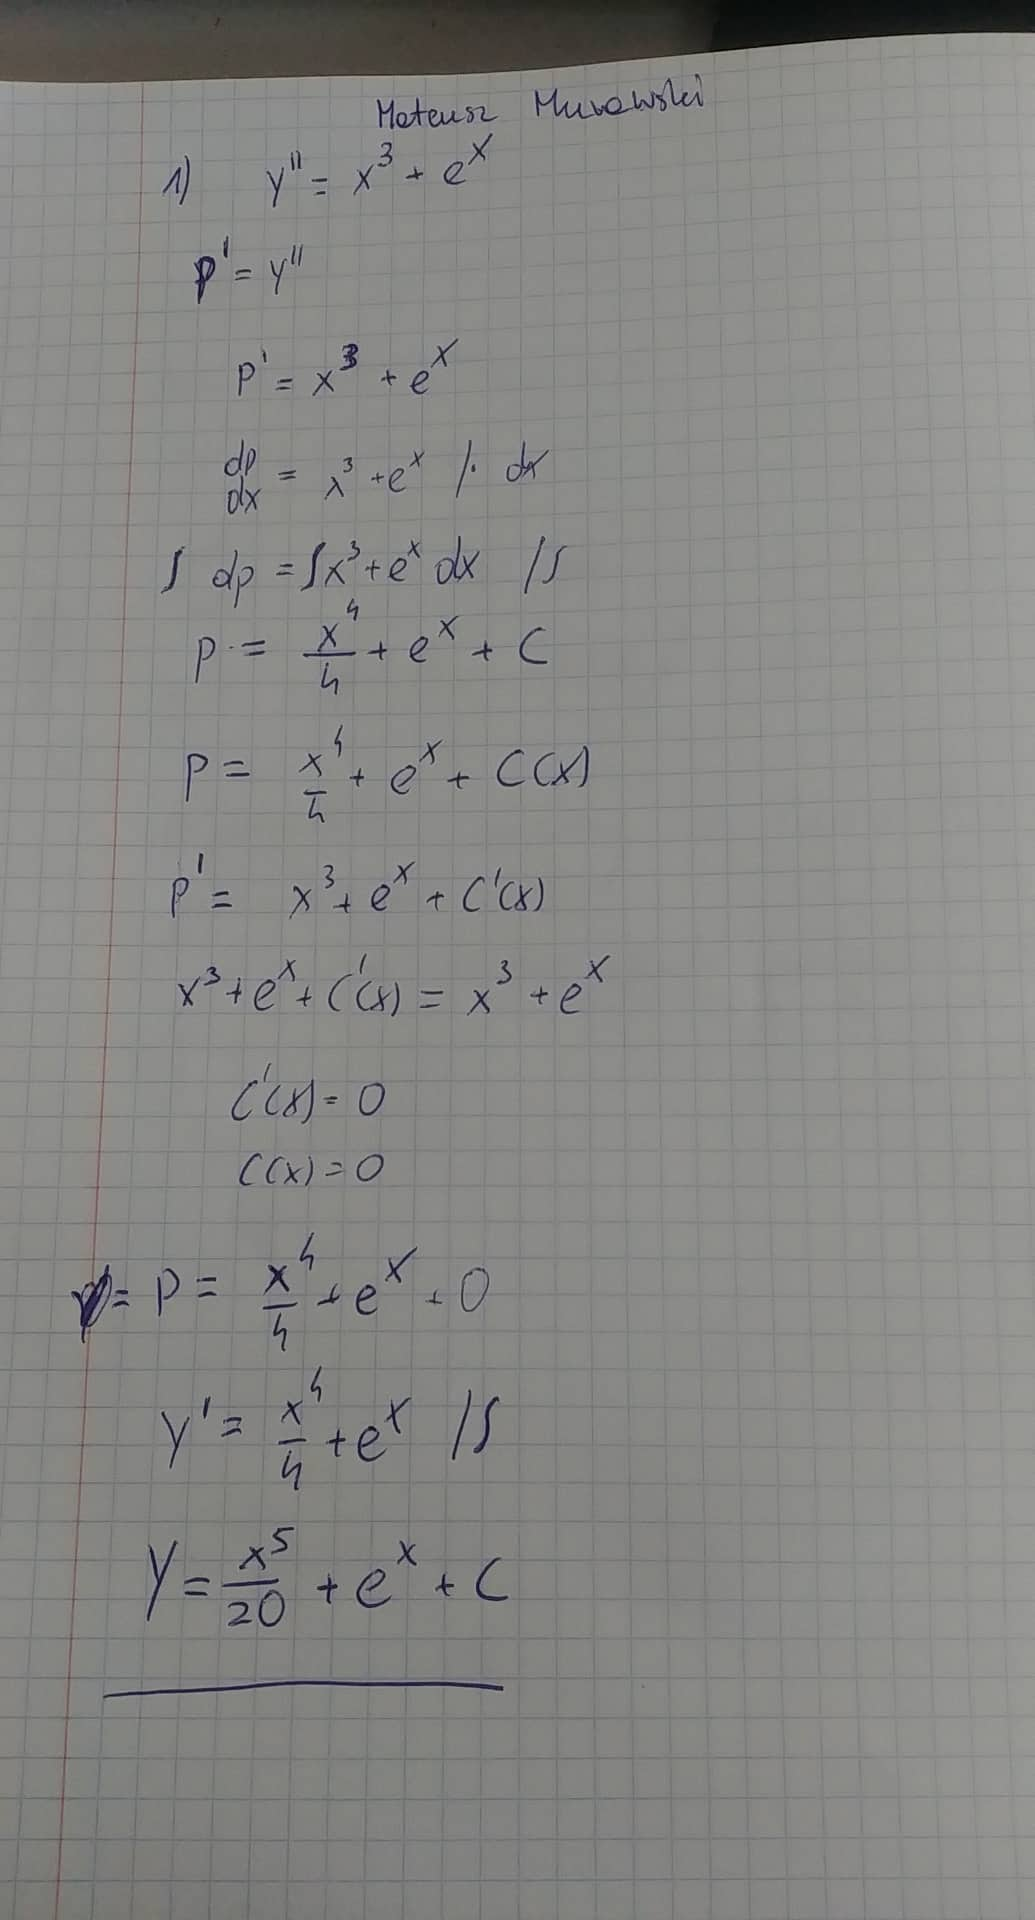 Mateusz Murawski
1) y'' = x³ + eˣ
p' = y''
p' = x³ + eˣ
dp/dx = x³ + eˣ /· dx
∫ dp = ∫x³ + eˣ dx /∫
p = x⁴/4 + eˣ + C
p = x⁴/4 + eˣ + C(x)
p' = x³ + eˣ + C'(x)
x³ + eˣ + C'(x) = x³ + eˣ
C'(x) = 0
C(x) = 0
= p = x⁴/4 + eˣ + 0
y' = x⁴/4 + eˣ /∫
y = x⁵/20 + eˣ + C